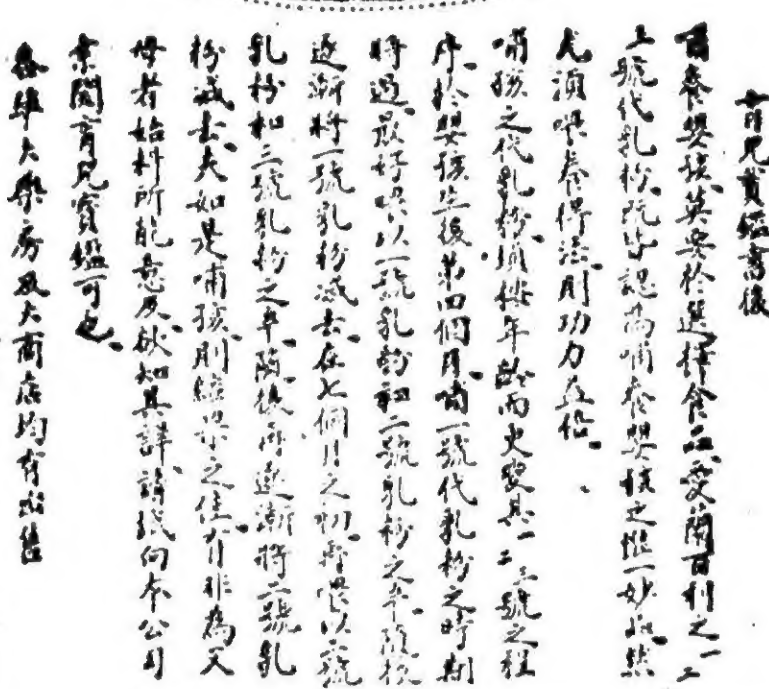 育兒寶鑑書後
育養嬰孩莫要於選擇食品愛蘭百利之一二
三號代乳粉既皆認為哺養嬰孩之惟一妙品然
尤須喂養得法則功力益倍
哺孩之代乳粉須按年齡而更變其一二三號之程
序於嬰孩生後第四個月哺一號代乳粉之時期
將過最好喂以一號乳粉和二號乳粉之半隨後
逐漸將一號乳粉減去在七個月之初再喂以二號
乳粉和三號乳粉之半隨後再逐漸將二號乳
粉減去夫如是哺孩則結果之佳有非為父
母者始料所能意及欲知其詳請致函向本公司
索閱育兒寶鑑可也
各埠大藥房及大商店均有出售